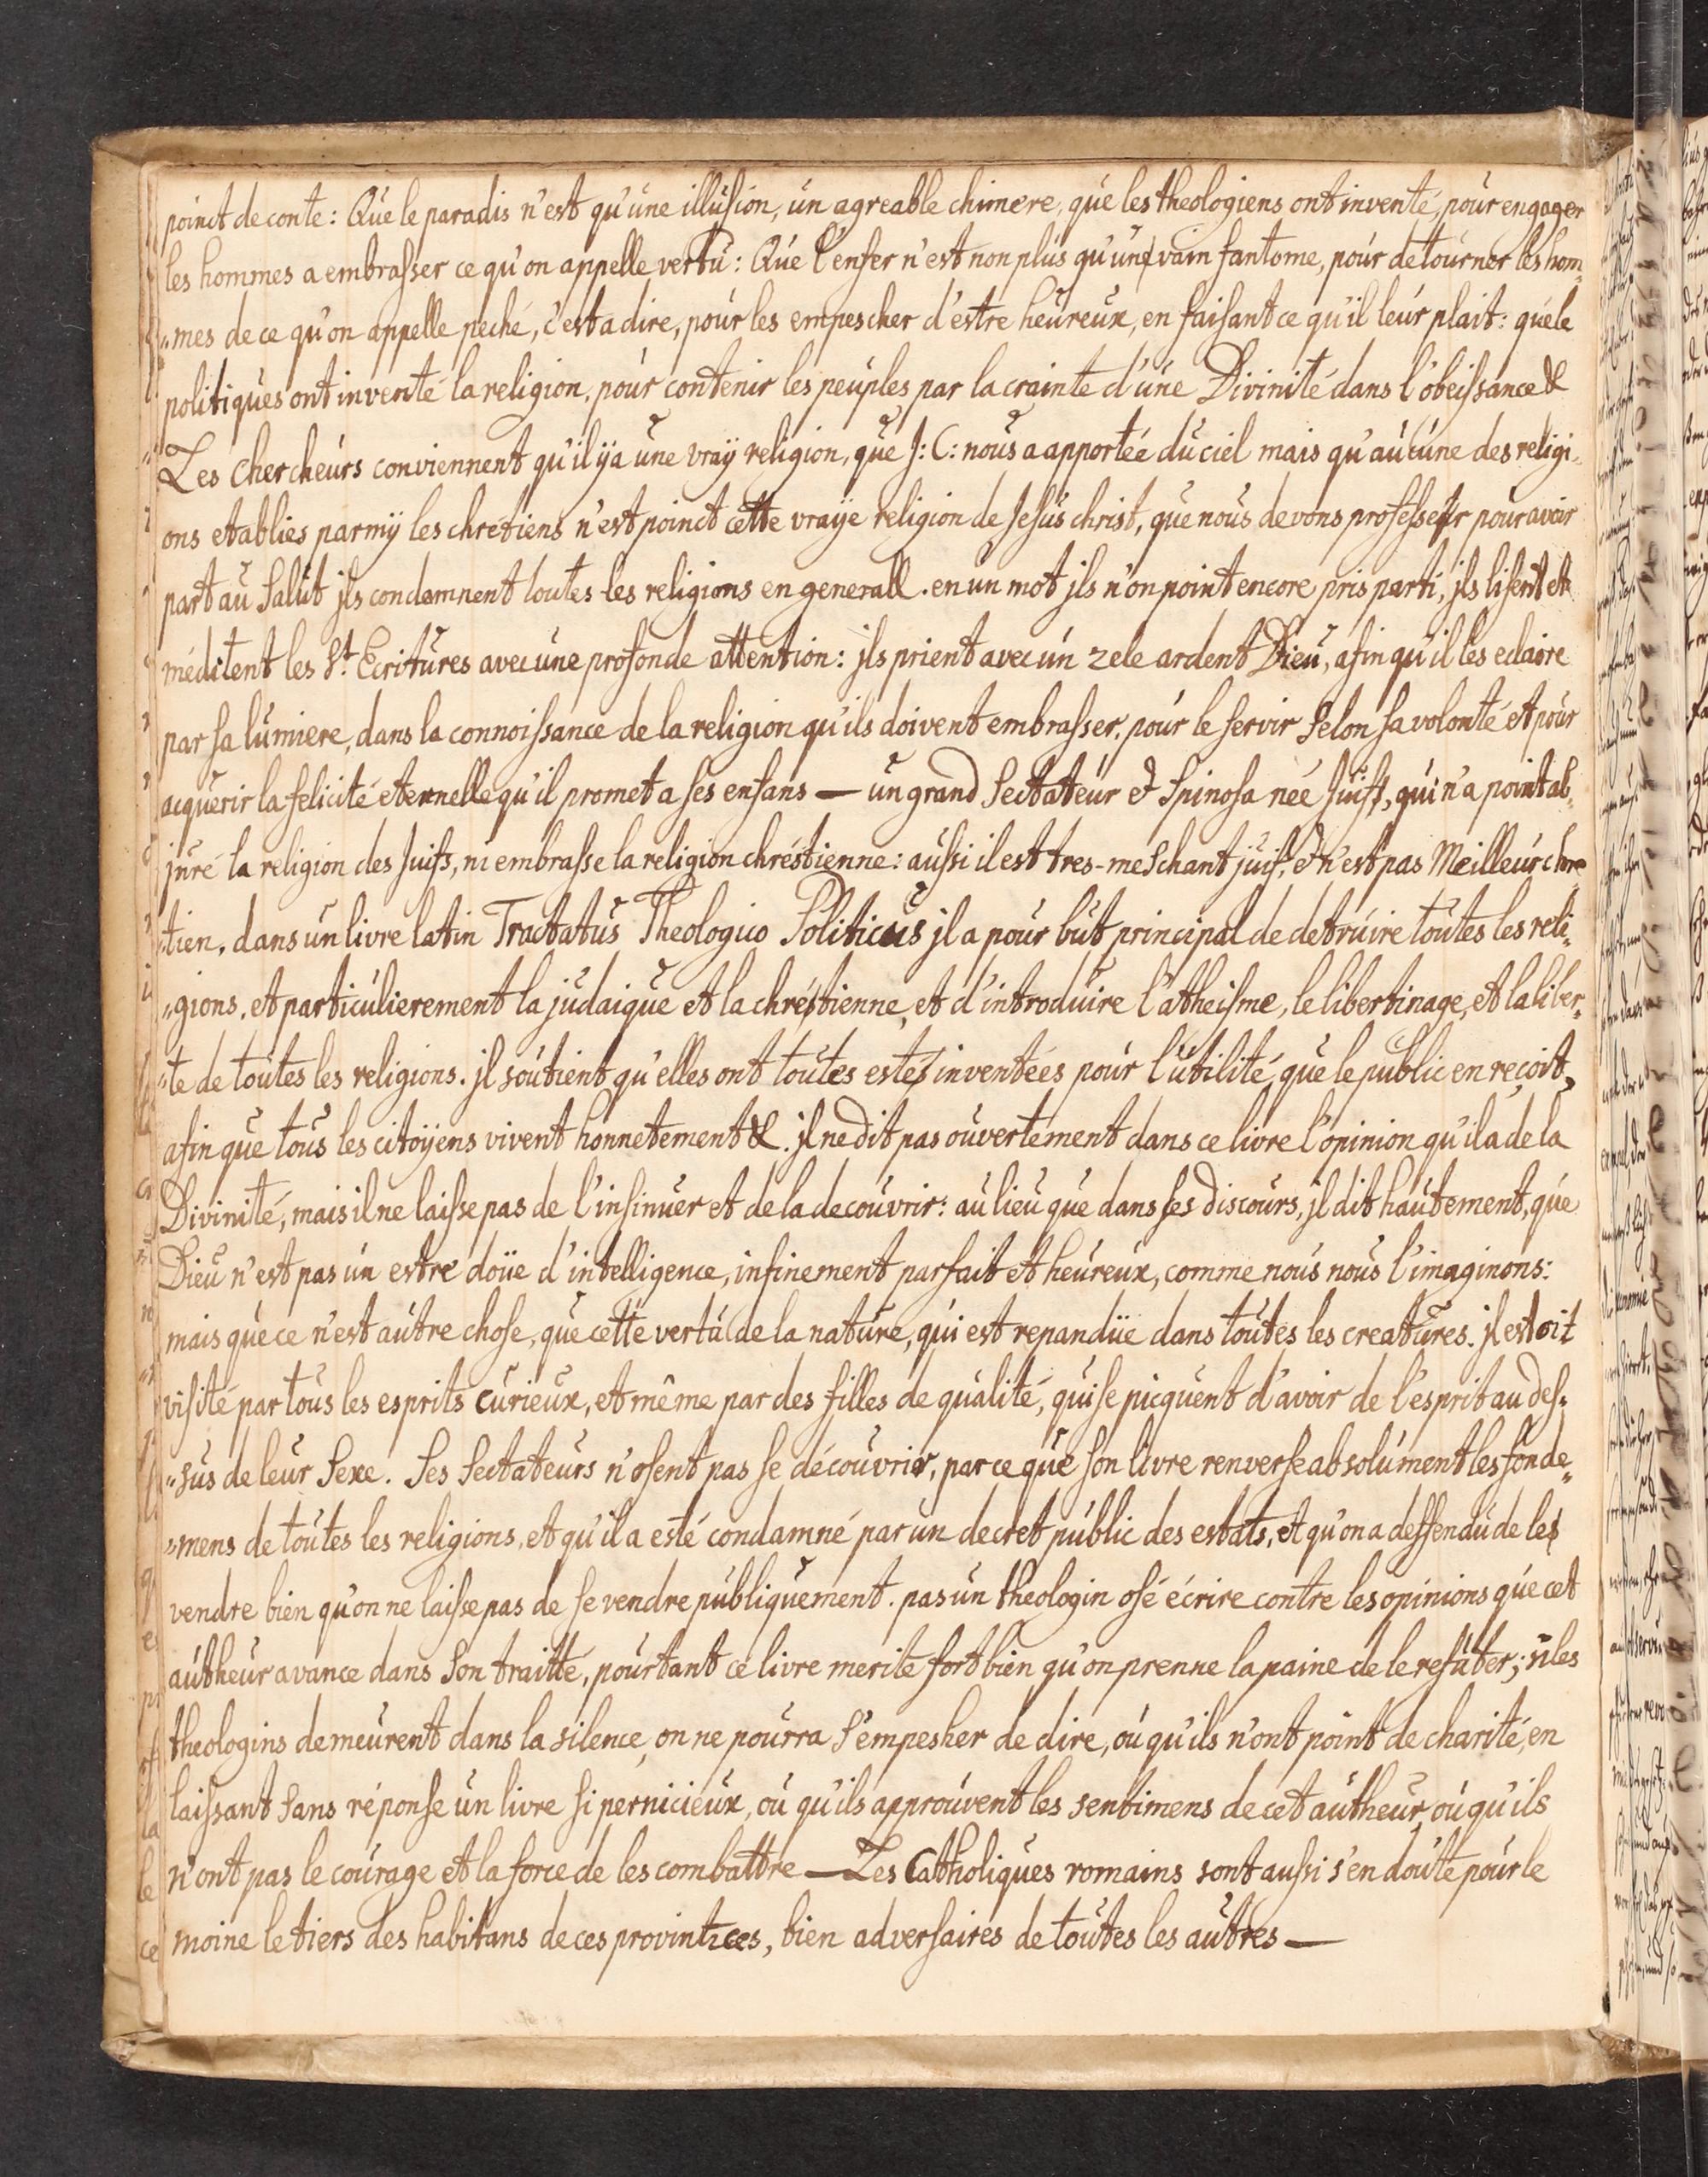 poinct de conte: Que le paradis n'est qu'une illusion, un agreable chimere, que les theologiens ont inventé, pour engager
les hommes a embrasser ce qu'on appelle vertu: Que l'enfer n'est non plus qu'un vain fantome, pour detourner les hom„
„mes de ce qu'on appelle peché, c'est a dire, pour les empescher d'estre heureux, en faisant ce qu'il leur plait: que le
politiques ont inventé la religion, pour contenir les peuples par la crainte d'une Divinité dans l'obeissance &
Les chercheurs conviennent qu'il ÿ a une vraÿ religion, que J: C: nous a apportée du ciel mais qu'aucune des religi„
ons etablies parmÿ les chretiens n'est poinct cette vraÿe religion de Jesus christ, que nous devons professer pour avoir
part au Salut jls condamnent toutes les religions en generall. en un mot jls n'on point encore pris parti, jls lisent et
méditent les St. Ecritures avec une profonde attention: jls prient avec un zele ardent Dieu, afin qu'il les eclaire
par sa lumiere, dans la connoissance de la religion qu'ils doivent embrasser, pour le servir Selon sa volonté et pour
acquerir la felicité eternelle qu'il promet a ses enfans — un grand Sectateur & Spinosa née Juif, qui n'a point ab„
juré la religion des Juifs, ni embrasse la religion chréstienne: aussi il est tres-meschant juif, & n'est pas Meilleur chre
„tien. dans un livre latin Tractatus Theologico Politicus jl a pour but principal de detruire toutes les reli„
„gions. et particulierement la judaique et la chréstienne, et d'introduire l'atheisme, le libertinage, et la liber„
„te de toutes les religions. jl soutient qu'elles ont toutes estes inventées pour l'utilité, que le public en reçoit,
afin que tous les citoÿens vivent honnetement &. jl ne dit pas ouvertement dans ce livre l'opinion qu'il a de la
Divinité, mais il ne laisse pas de l'insinuer et de la decouvrir: au lieu que dans ses discours, jl dit hautement, que
Dieu n'est pas un estre doüe d'intelligence, infinement parfait et heureux, comme nous nous l'imaginons:
mais que ce n'est autre chose, que cette vertu de la nature, qui est repandüe dans toutes les creatures. jl estoit
visité par tous les esprits curieux, et même par des filles de qualité, qui se picquent d'avoir de l'esprit au des„
„sus de leur Sexe. Ses Sectateurs n'osent pas se découvrir, par ce que son livre renverse absolument les fonde„
„mens de toutes les religions, et qu'il a esté condamné par un decret public des estats, et qu'on a deffendu de les
vendre bien qu'on ne laisse pas de se vendre publiquement. pas un theologin osé écrire contre les opinions que cet
autheur avance dans son traitte, pourtant ce livre merite fort bien qu'on prenne la paine de le refuter; si les
theologins demeurent dans la silence, on ne pourra s'empesher de dire, ou qu'ils n'ont point de charité, en
laissant sans réponse un livre si pernicieux, ou qu'ils approuvent les sentimens de cet autheur, ou qu'ils
n'ont pas le courage et la force de les combattre — Les Catholiques romains sont aussi s'en doute pour le
moine le tiers des habitans de ces provintzces, bien adversaires de toutes les autres —